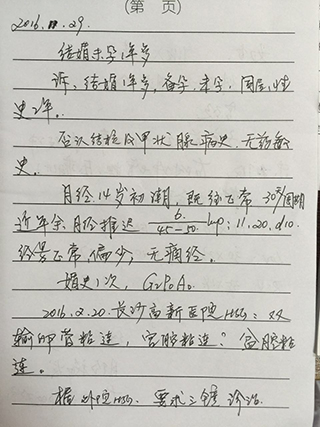 (第 页)
2016.11.29.
结婚未孕1年多
诉:结婚1年多,备孕,未孕,同居,性
史2年。
否认结核及甲状腺病史.无药敏
史.
月经:14岁初潮,既往正常 30天/周期
近年余月经推迟 6/45-50 lmp:11.20.d10.
经量正常,偏少,无痛经.
婚史1次, G2P0A0.
2016.2.20.长沙高新医院HSG:双
输卵管粘连,宫腔粘连?盆腔粘
连。
据外院HSG,要求三镜诊治.